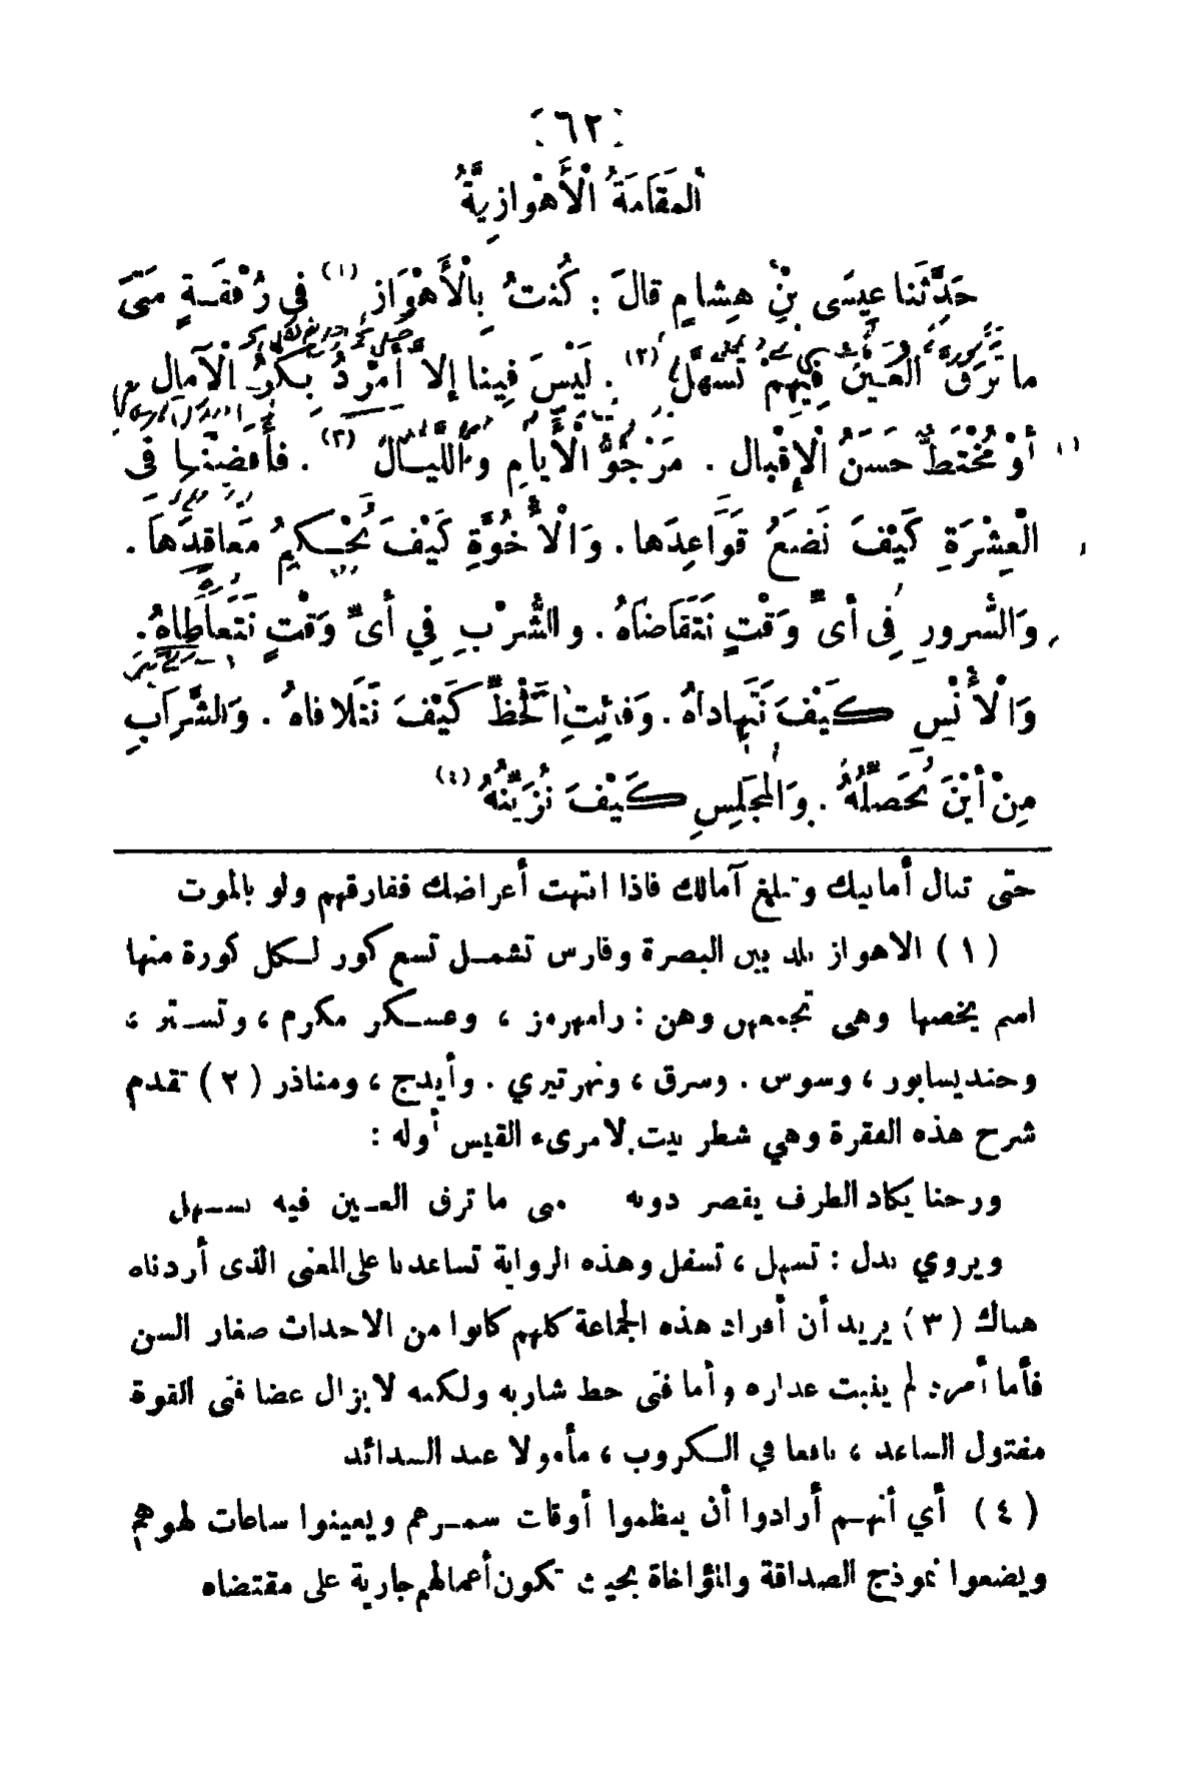 [٦٢]
المَقَامَةُ الْأَهْوازِيَّةُ
حَدَّثَنا عِيسَى بْنُ هِشامٍ قالَ : كُنتُ بِالْأَهْوَازِ (١) فِي رُفْقَةٍ مَتَى
ما تَرَقَّ العَيْنُ فِيهِمْ تَسَهَّلِ (٢) . لَيْسَ فِينا إلاَّ أَمْرَدُ بِكْرُ الْآمالِ
أوْ مُخْتَطٌّ حَسَنُ الْإقْبالِ . مَرْجُوُّ الْأَيَّامِ وَاللَّيَالِ (٣) . فأفَضْنا فى
الْعِشْرَةِ كَيْفَ نَضَعُ قَوَاعِدَها . وَالْأُخُوَّةِ كَيْفَ نُحْكِمُ مَعَاقِدَهَا .
وَالسُّرورِ فِى أىِّ وَقْتٍ نَتَقَاضَاهُ . والشُّرْبِ فِي أىِّ وَقْتٍ نَتَعَاطاهُ .
وَالْأُنْسِ كَيْفَ نَتَهاداهُ . وَفائِتِ الْحَظِّ كَيْفَ نَتَلافاهُ . وَالشَّرَابِ
مِنْ أَيْنَ نُحَصِّلُهُ . وَالمَجْلِسِ كَيْفَ نُزَيِّنُهُ (٤)
حتى تنال أمانيك وتبلغ آمالك فاذا انتهت أعراضك ففارقهم ولو بالموت
(١) الاهواز بلد بين البصرة وفارس تشمل تسع كور لكل كورة منها
اسم يخصها وهى تجمعهن وهن : رامهرمز ، وعسكر مكرم ، وتستر ،
وجنديسابور ، وسوس . وسرق ، ونهرتيري . وأيدج ، ومناذر (٢) تقدم
شرح هذه الفقرة وهي شطر بيت لامرىء القيس أوله :
ورحنا يكاد الطرف يقصر دونه متى ما ترق العين فيه تسهل
ويروي بدل : تسهل ، تسفل وهذه الرواية تساعدنا على المعنى الذى أردناه
هناك (٣) يريد أن أفراد هذه الجماعة كلهم كانوا من الاحداث صغار السن
فأما أمرد لم ينبت عذاره وأما فتى خط شاربه ولكنه لا يزال غضا فتى القوة
مفتول الساعد ، نافعا في الكروب ، مأمولا عند الشدائد
(٤) أي أنهم أرادوا أن ينظموا أوقات سمرهم ويعينوا ساعات لهوهم
ويضعوا نموذج الصداقة والمؤاخاة بحيث تكون أعمالهم جارية على مقتضاه